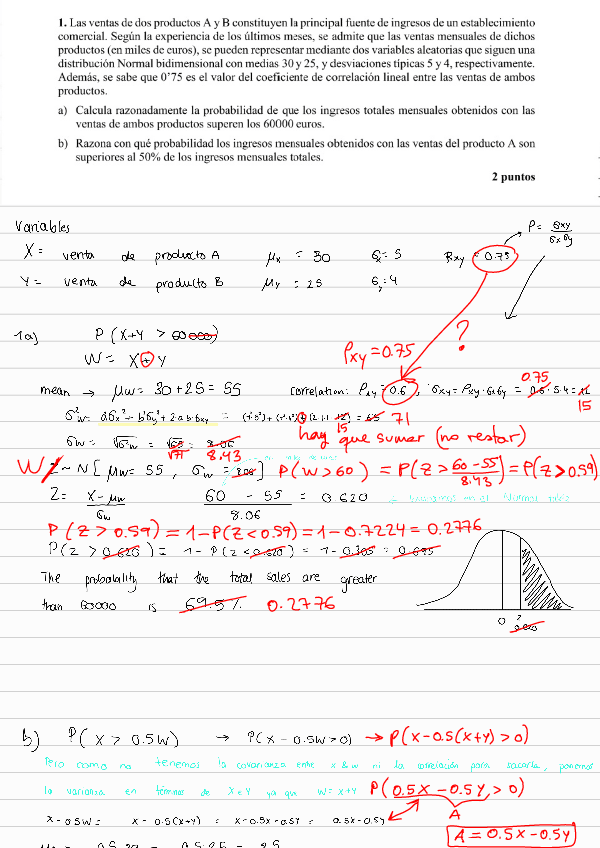 1. Las ventas de dos productos A y B constituyen la principal fuente de ingresos de un establecimiento
comercial. Según la experiencia de los últimos meses, se admite que las ventas mensuales de dichos
productos (en miles de euros), se pueden representar mediante dos variables aleatorias que siguen una
distribución Normal bidimensional con medias 30 y 25, y desviaciones típicas 5 y 4, respectivamente.
Además, se sabe que 0'75 es el valor del coeficiente de correlación lineal entre las ventas de ambos
productos.
a) Calcula razonadamente la probabilidad de que los ingresos totales mensuales obtenidos con las
ventas de ambos productos superen los 60000 euros.
b) Razona con qué probabilidad los ingresos mensuales obtenidos con las ventas del producto A son
superiores al 50% de los ingresos mensuales totales.
2 puntos
Variables
ρ = σxy / σx σy
X = venta de producto A μx = 30 σx = 5 Rxy = 0.75
Y = venta de producto B μy = 25 σy = 4
?
1a) P(X+Y > 60000)
ρxy = 0.75
W = X+Y
0.75
mean → μw = 30+25 = 55 correlation: ρxy = 0.6, σxy = ρxy·σx·σy = 0.6·5·4 = 12
15
15
σ²w = = 65 71
hay que sumar (no restar)
σw = √σ²w = √65 = 8.06
√71 8.43
W Z ~ N [ μw = 55, σw = 8.06 ] P(W>60) = P(Z > 60-55 / 8.43) = P(Z > 0.59)
Z = X - μw / σw 60 - 55 / 8.06 = 0.620
P(Z > 0.59) = 1-P(Z<0.59) = 1-0.7224 = 0.2776
P(Z > 0.620) = 1 - P(Z < 0.620) = 1 - 0.305 = 0.695
The probability that the total sales are greater
than 60000 is 69.5% 0.2776
0
b) P(X > 0.5W) → P(X - 0.5W > 0) → P(X-0.5(X+Y) > 0)
Pero como no tenemos la covarianza entre x & w ni la correlación para sacarla, ponemos
la varianza en términos de X e Y ya que W = X+Y P(0.5X - 0.5Y > 0)
A
X - 0.5W = X - 0.5(X+Y) = X - 0.5X - 0.5Y = 0.5X - 0.5Y
A = 0.5X - 0.5Y